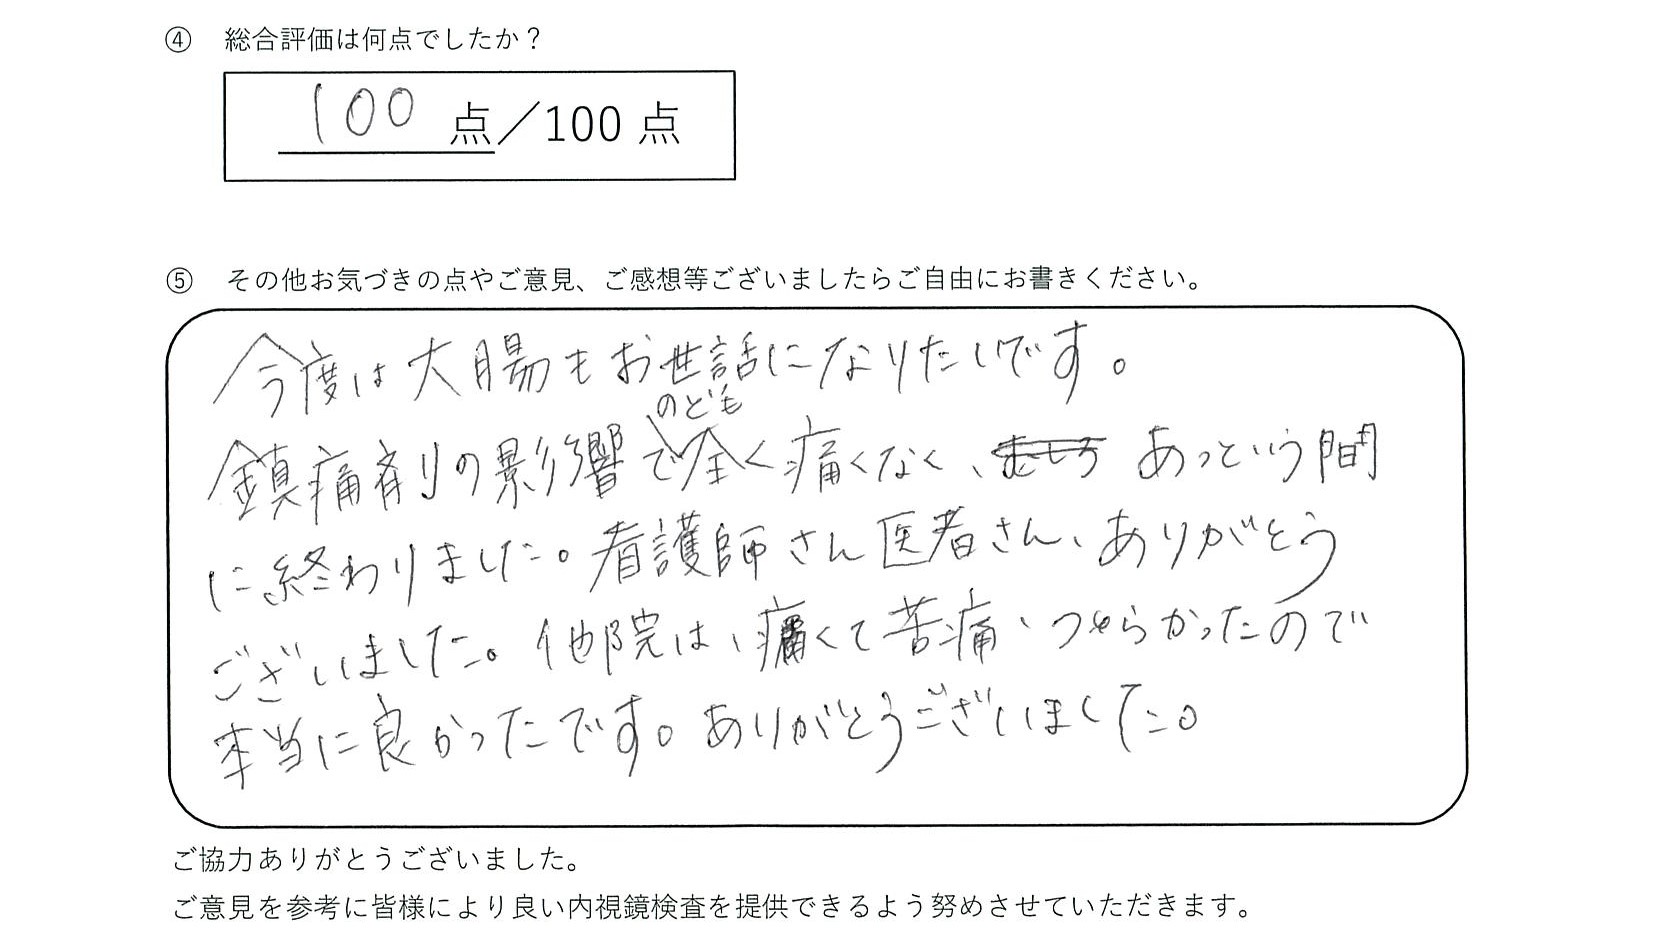 ④ 総合評価は何点でしたか？
100 点／100 点
⑤ その他お気づきの点やご意見、ご感想等ございましたらご自由にお書きください。
今度は大腸もお世話になりたいです。
鎮痛剤の影響でのども全く痛くなく、あっという間
に終わりました。看護師さん医者さん、ありがとう
ございました。他院は、痛くて苦痛、つらかったので
本当に良かったです。ありがとうございました。
ご協力ありがとうございました。
ご意見を参考に皆様により良い内視鏡検査を提供できるよう努めさせていただきます。